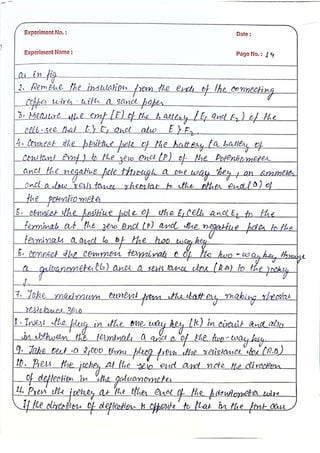 Experiment No. :
Date :
Experiment Name :
Page No. : 14
as in fig
2. Remove the insulation from the ends of the connecting
copper wires with a sand paper
3. Measure the emf (E) of the battery (E1 and E2) of the
cell. see that E > E1 and also E > E2.
4. Connect the positive pole of the battery (a battery of
constant emf) to the zero end (P) of the Potentiometer
and the negative pole through a one way key, an ammeter
and a low resistance rheostat to the other end (Q) of
the potentiometer
5. connect the positive pole of the E1 cells and E2 to the
terminals at the zero end (P) and the negative poles to the
terminals a and b of the two way key
6. connect the common terminals c of the two-way key through
a galvanometer (G) and a resistance box (R.B) to the jockey
J.
7. Take maximum current from the battery making rheostat
resistance zero
8. Insert the plug in the one way key (K) in circuit and also
in between the terminals a and c of the two-way key.
9. Take out a 2,000 ohms plug from the resistance box (R.B)
10. Press the jockey at the zero end and note the direction
of deflection in the galvanometer
11. Press the jockey at the other end of the potentiometer wire
If the direction of deflection is opposite to that in the first case